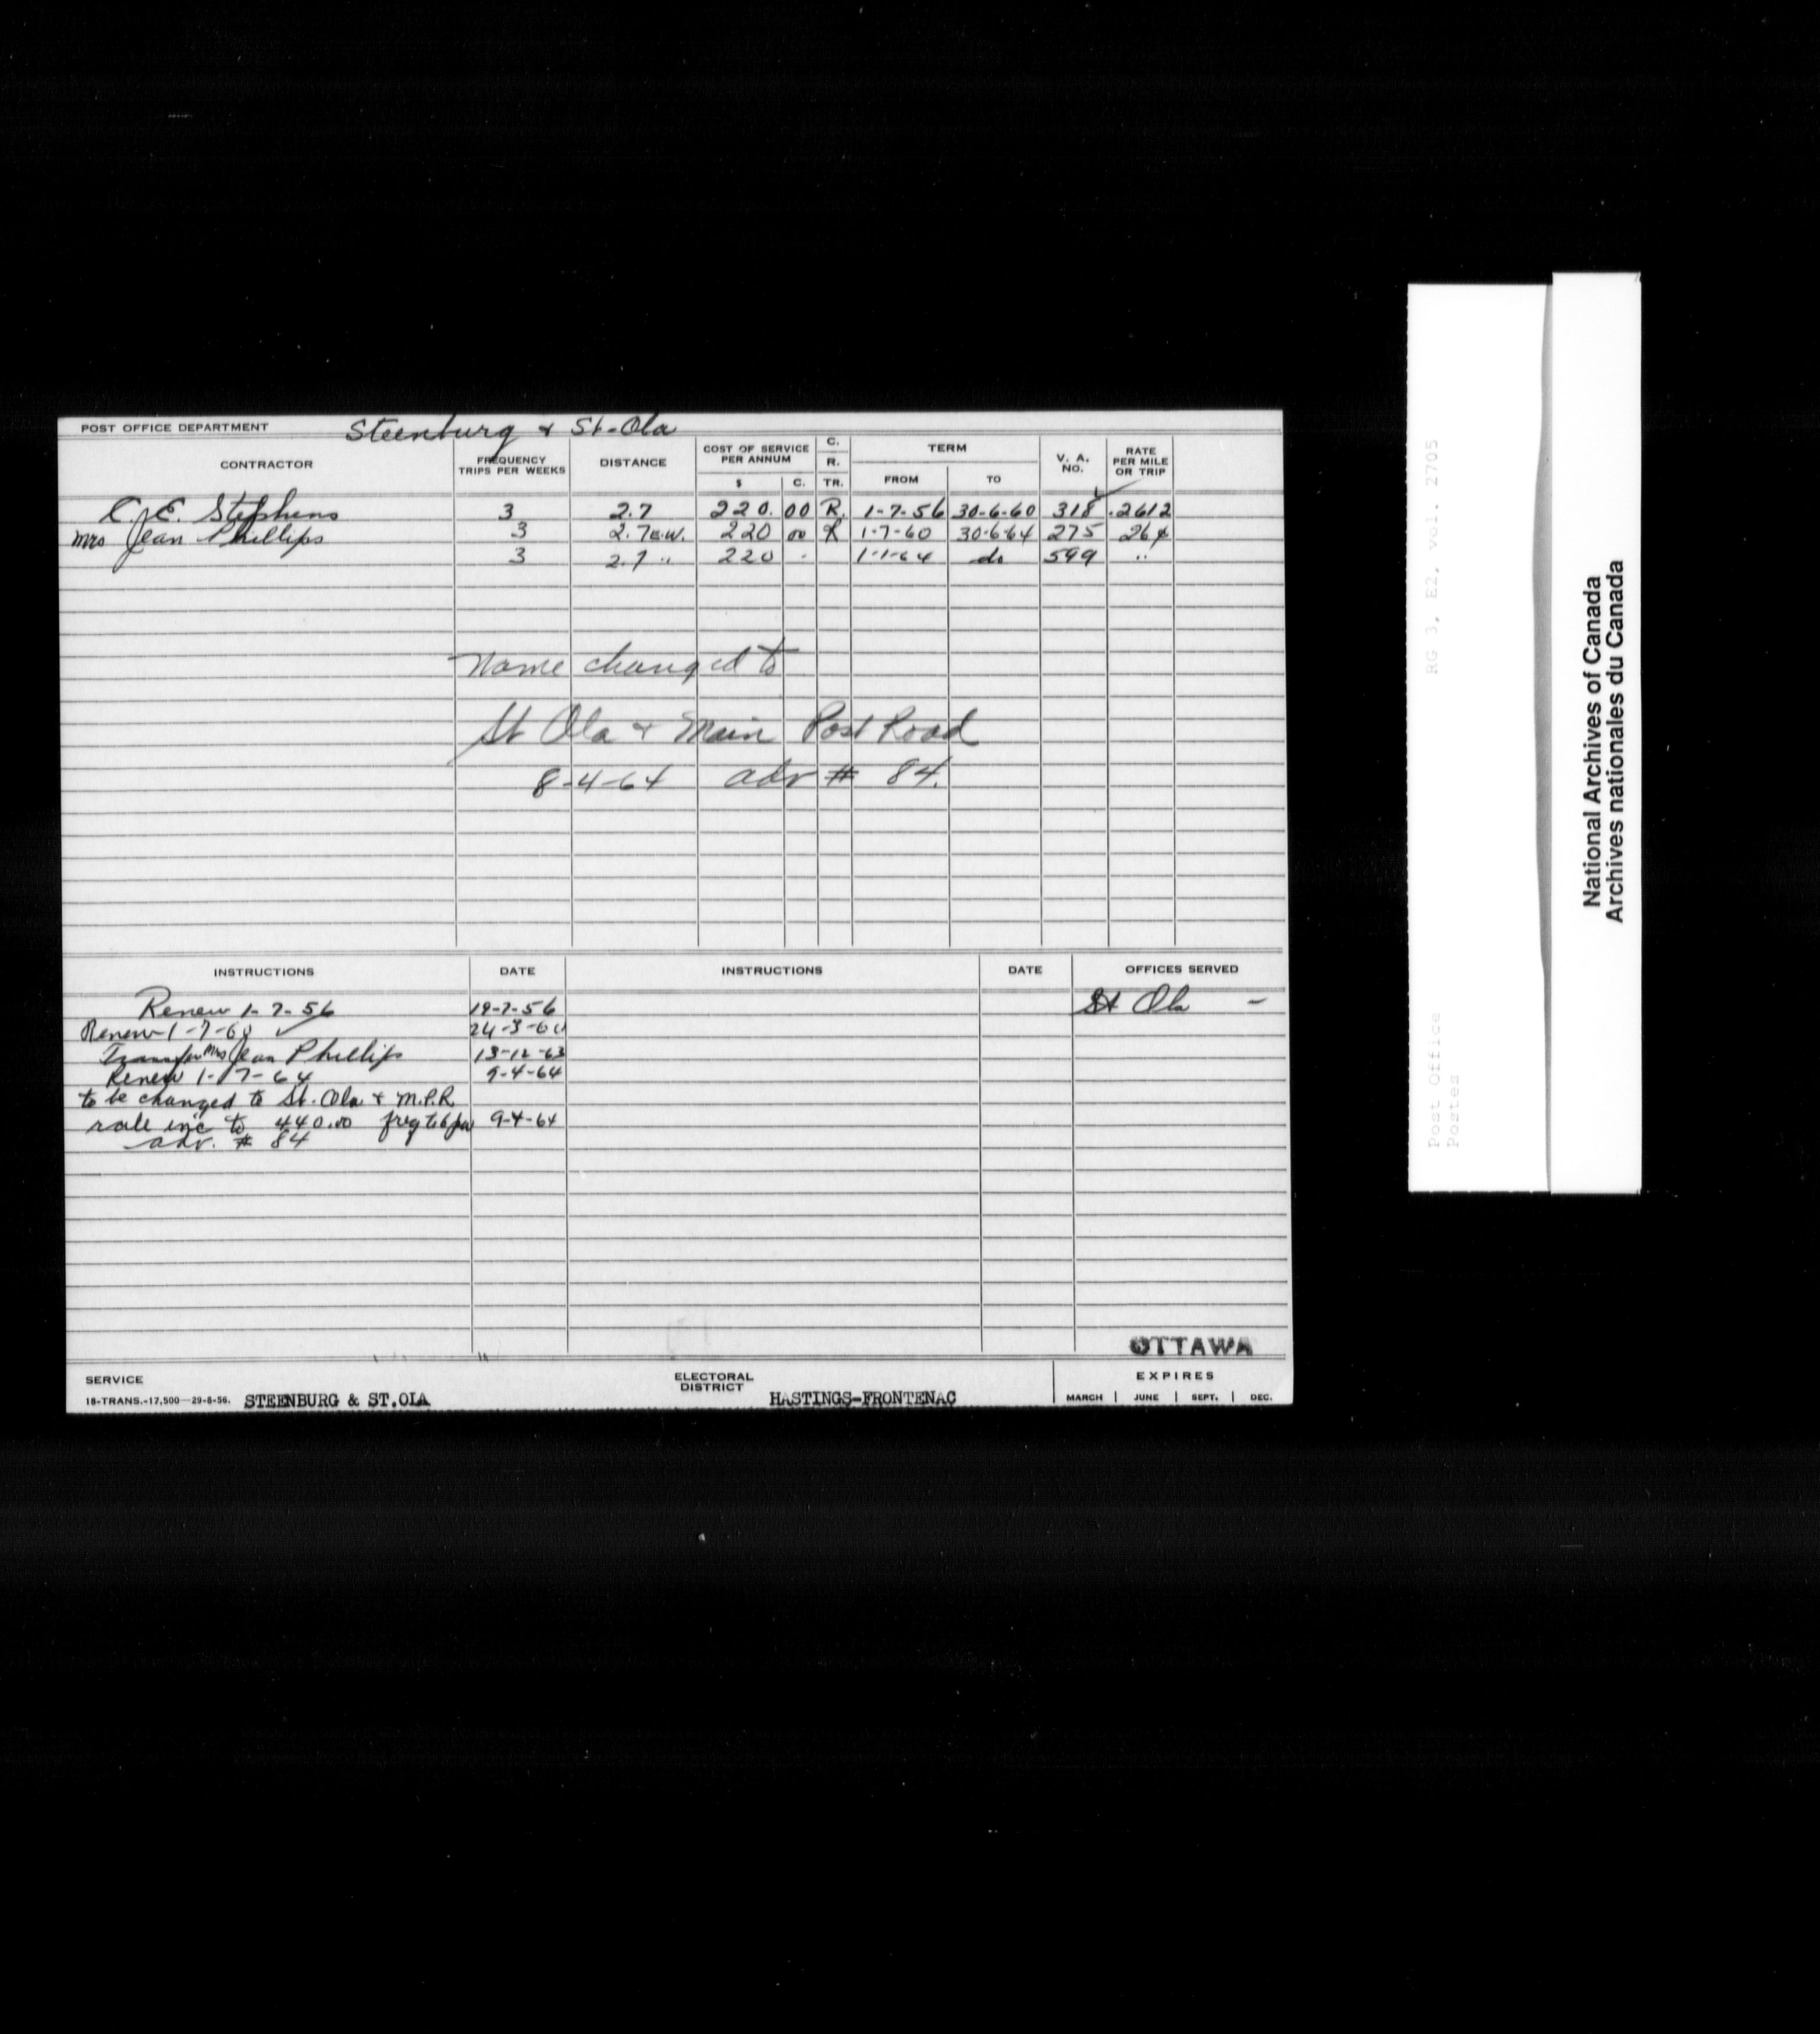 POST OFFICE DEPARTMENT Steenburg & St-Ola
CONTRACTOR FREQUENCY TRIPS PER WEEKS DISTANCE COST OF SERVICE PER ANNUM $ C. C. R. TR. TERM FROM TO V. A. NO. RATE PER MILE OR TRIP
E. Stephens 3 2.7 220.00 R. 1-7-56 30-6-60 318 .2612
Mrs Jean Phillips 3 2.7 E.W. 220 00 R 1-7-60 30-6-64 275 26¢
3 2.7 " 220 - 1-1-64 do 599 "
Name changed to
St Ola & Main Post Road
8-4-64 adv # 84.
INSTRUCTIONS DATE INSTRUCTIONS DATE OFFICES SERVED
Renew 1-7-56 19-7-56 St Ola -
Renew 1-7-60 ✓ 24-3-60
Transfer Mrs Jean Phillips 13-12-63
Renew 1-7-64 9-4-64
to be changed to St. Ola & M.P.R
rate inc to 440.00 freq to 6 pw 9-4-64
adv. # 84
OTTAWA
SERVICE ELECTORAL DISTRICT EXPIRES
18-TRANS.-17,500-29-8-56. STEENBURG & ST.OLA HASTINGS-FRONTENAC MARCH | JUNE | SEPT. | DEC.
RG 3, E2, vol. 2705
Post Office
Postes
National Archives of Canada
Archives nationales du Canada